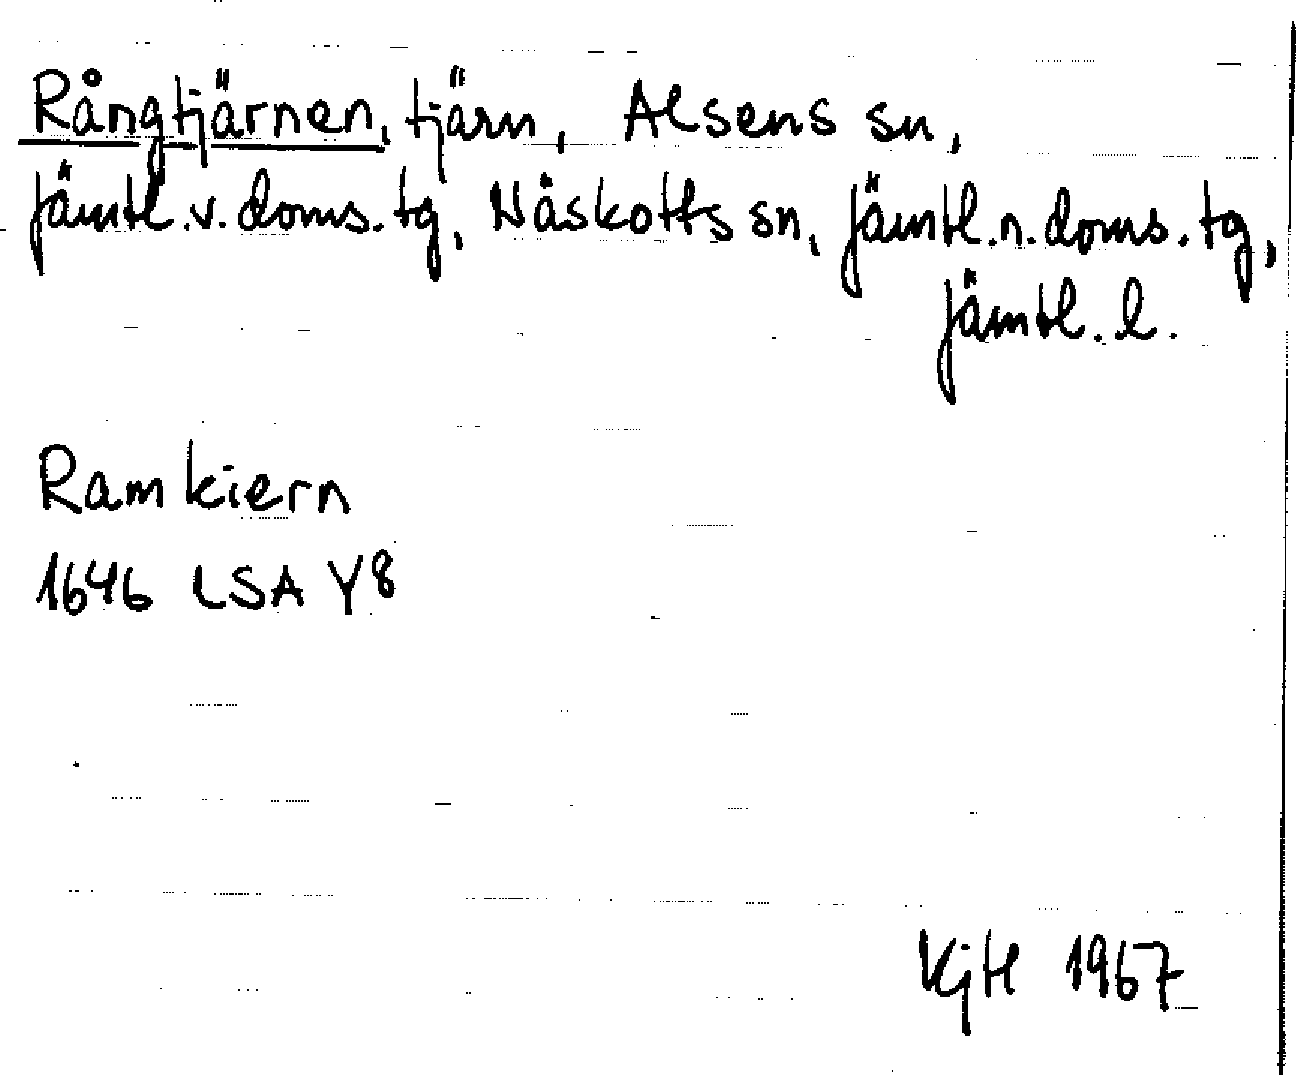 Rångtjärnen, tjärn, Alsens sn,
Jämtl.v.doms.tg, Näskotts sn, Jämtl.n.doms.tg,
Jämtl.l.
Ramkiern
1646 LSA Y8
KjH 1967